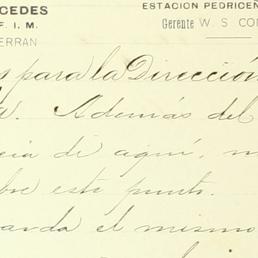 CEDES ESTACION PEDRICEÑ
F. I. M. Gerente W. S. CON
ERRAN
para la Dirección
Además del
cia de aquí, m
bre este punto.
arda el mismo